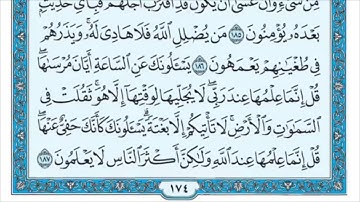 مِن شَىْءٍ وَأَنْ عَسَىٰٓ أَن يَكُونَ قَدِ ٱقْتَرَبَ أَجَلُهُمْ فَبِأَىِّ حَدِيثٍۭ
بَعْدَهُۥ يُؤْمِنُونَ ١٨٥ مَن يُضْلِلِ ٱللَّهُ فَلَا هَادِىَ لَهُۥ وَيَذَرُهُمْ
فِى طُغْيَٰنِهِمْ يَعْمَهُونَ ١٨٦ يَسْـَٔلُونَكَ عَنِ ٱلسَّاعَةِ أَيَّانَ مُرْسَىٰهَا
قُلْ إِنَّمَا عِلْمُهَا عِندَ رَبِّى لَا يُجَلِّيهَا لِوَقْتِهَآ إِلَّا هُوَ ثَقُلَتْ فِى
ٱلسَّمَٰوَٰتِ وَٱلْأَرْضِ لَا تَأْتِيكُمْ إِلَّا بَغْتَةً يَسْـَٔلُونَكَ كَأَنَّكَ حَفِىٌّ عَنْهَا
قُلْ إِنَّمَا عِلْمُهَا عِندَ ٱللَّهِ وَلَٰكِنَّ أَكْثَرَ ٱلنَّاسِ لَا يَعْلَمُونَ ١٨٧
١٧٤